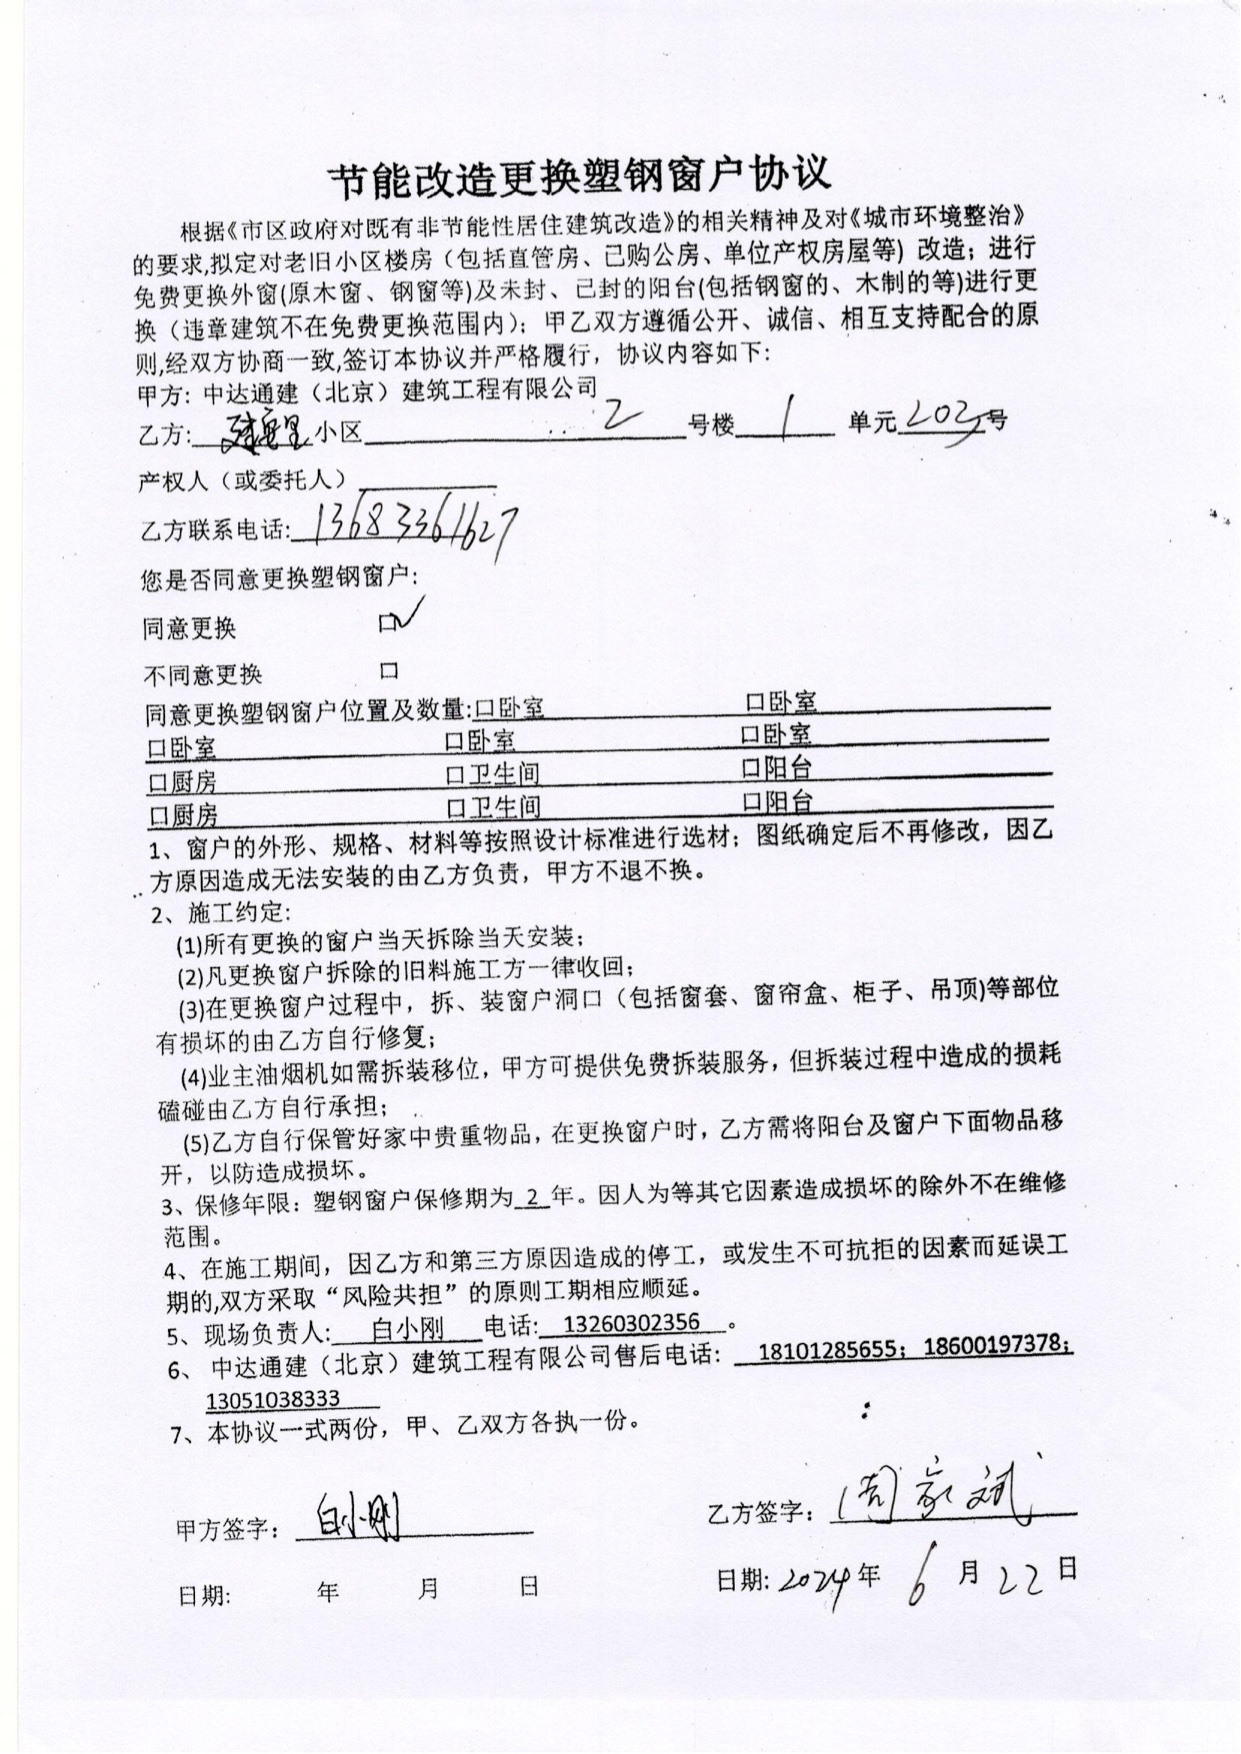 节能改造更换塑钢窗户协议
根据《市区政府对既有非节能性居住建筑改造》的相关精神及对《城市环境整治》
的要求,拟定对老旧小区楼房（包括直管房、已购公房、单位产权房屋等）改造；进行
免费更换外窗(原木窗、钢窗等)及未封、已封的阳台(包括钢窗的、木制的等)进行更
换（违章建筑不在免费更换范围内）；甲乙双方遵循公开、诚信、相互支持配合的原
则,经双方协商一致,签订本协议并严格履行，协议内容如下：
甲方：中达通建（北京）建筑工程有限公司
乙方: 小区 2 号楼 1 单元 202 号
产权人（或委托人）
乙方联系电话: 13683361627
您是否同意更换塑钢窗户:
同意更换 口✓
不同意更换 口
同意更换塑钢窗户位置及数量:口卧室 口卧室
口卧室 口卧室 口卧室
口厨房 口卫生间 口阳台
口厨房 口卫生间 口阳台
1、窗户的外形、规格、材料等按照设计标准进行选材；图纸确定后不再修改，因乙
方原因造成无法安装的由乙方负责，甲方不退不换。
2、施工约定:
(1)所有更换的窗户当天拆除当天安装；
(2)凡更换窗户拆除的旧料施工方一律收回；
(3)在更换窗户过程中，拆、装窗户洞口（包括窗套、窗帘盒、柜子、吊顶)等部位
有损坏的由乙方自行修复；
(4)业主油烟机如需拆装移位，甲方可提供免费拆装服务，但拆装过程中造成的损耗
磕碰由乙方自行承担；
(5)乙方自行保管好家中贵重物品，在更换窗户时，乙方需将阳台及窗户下面物品移
开，以防造成损坏。
3、保修年限：塑钢窗户保修期为 2 年。因人为等其它因素造成损坏的除外不在维修
范围。
4、在施工期间，因乙方和第三方原因造成的停工，或发生不可抗拒的因素而延误工
期的,双方采取“风险共担”的原则工期相应顺延。
5、现场负责人: 白小刚 电话: 13260302356 。
6、中达通建（北京）建筑工程有限公司售后电话： 18101285655；18600197378；
13051038333
7、本协议一式两份，甲、乙双方各执一份。
甲方签字： 白小刚 乙方签字： 周家斌
日期: 年 月 日 日期: 2024年 6 月 22 日